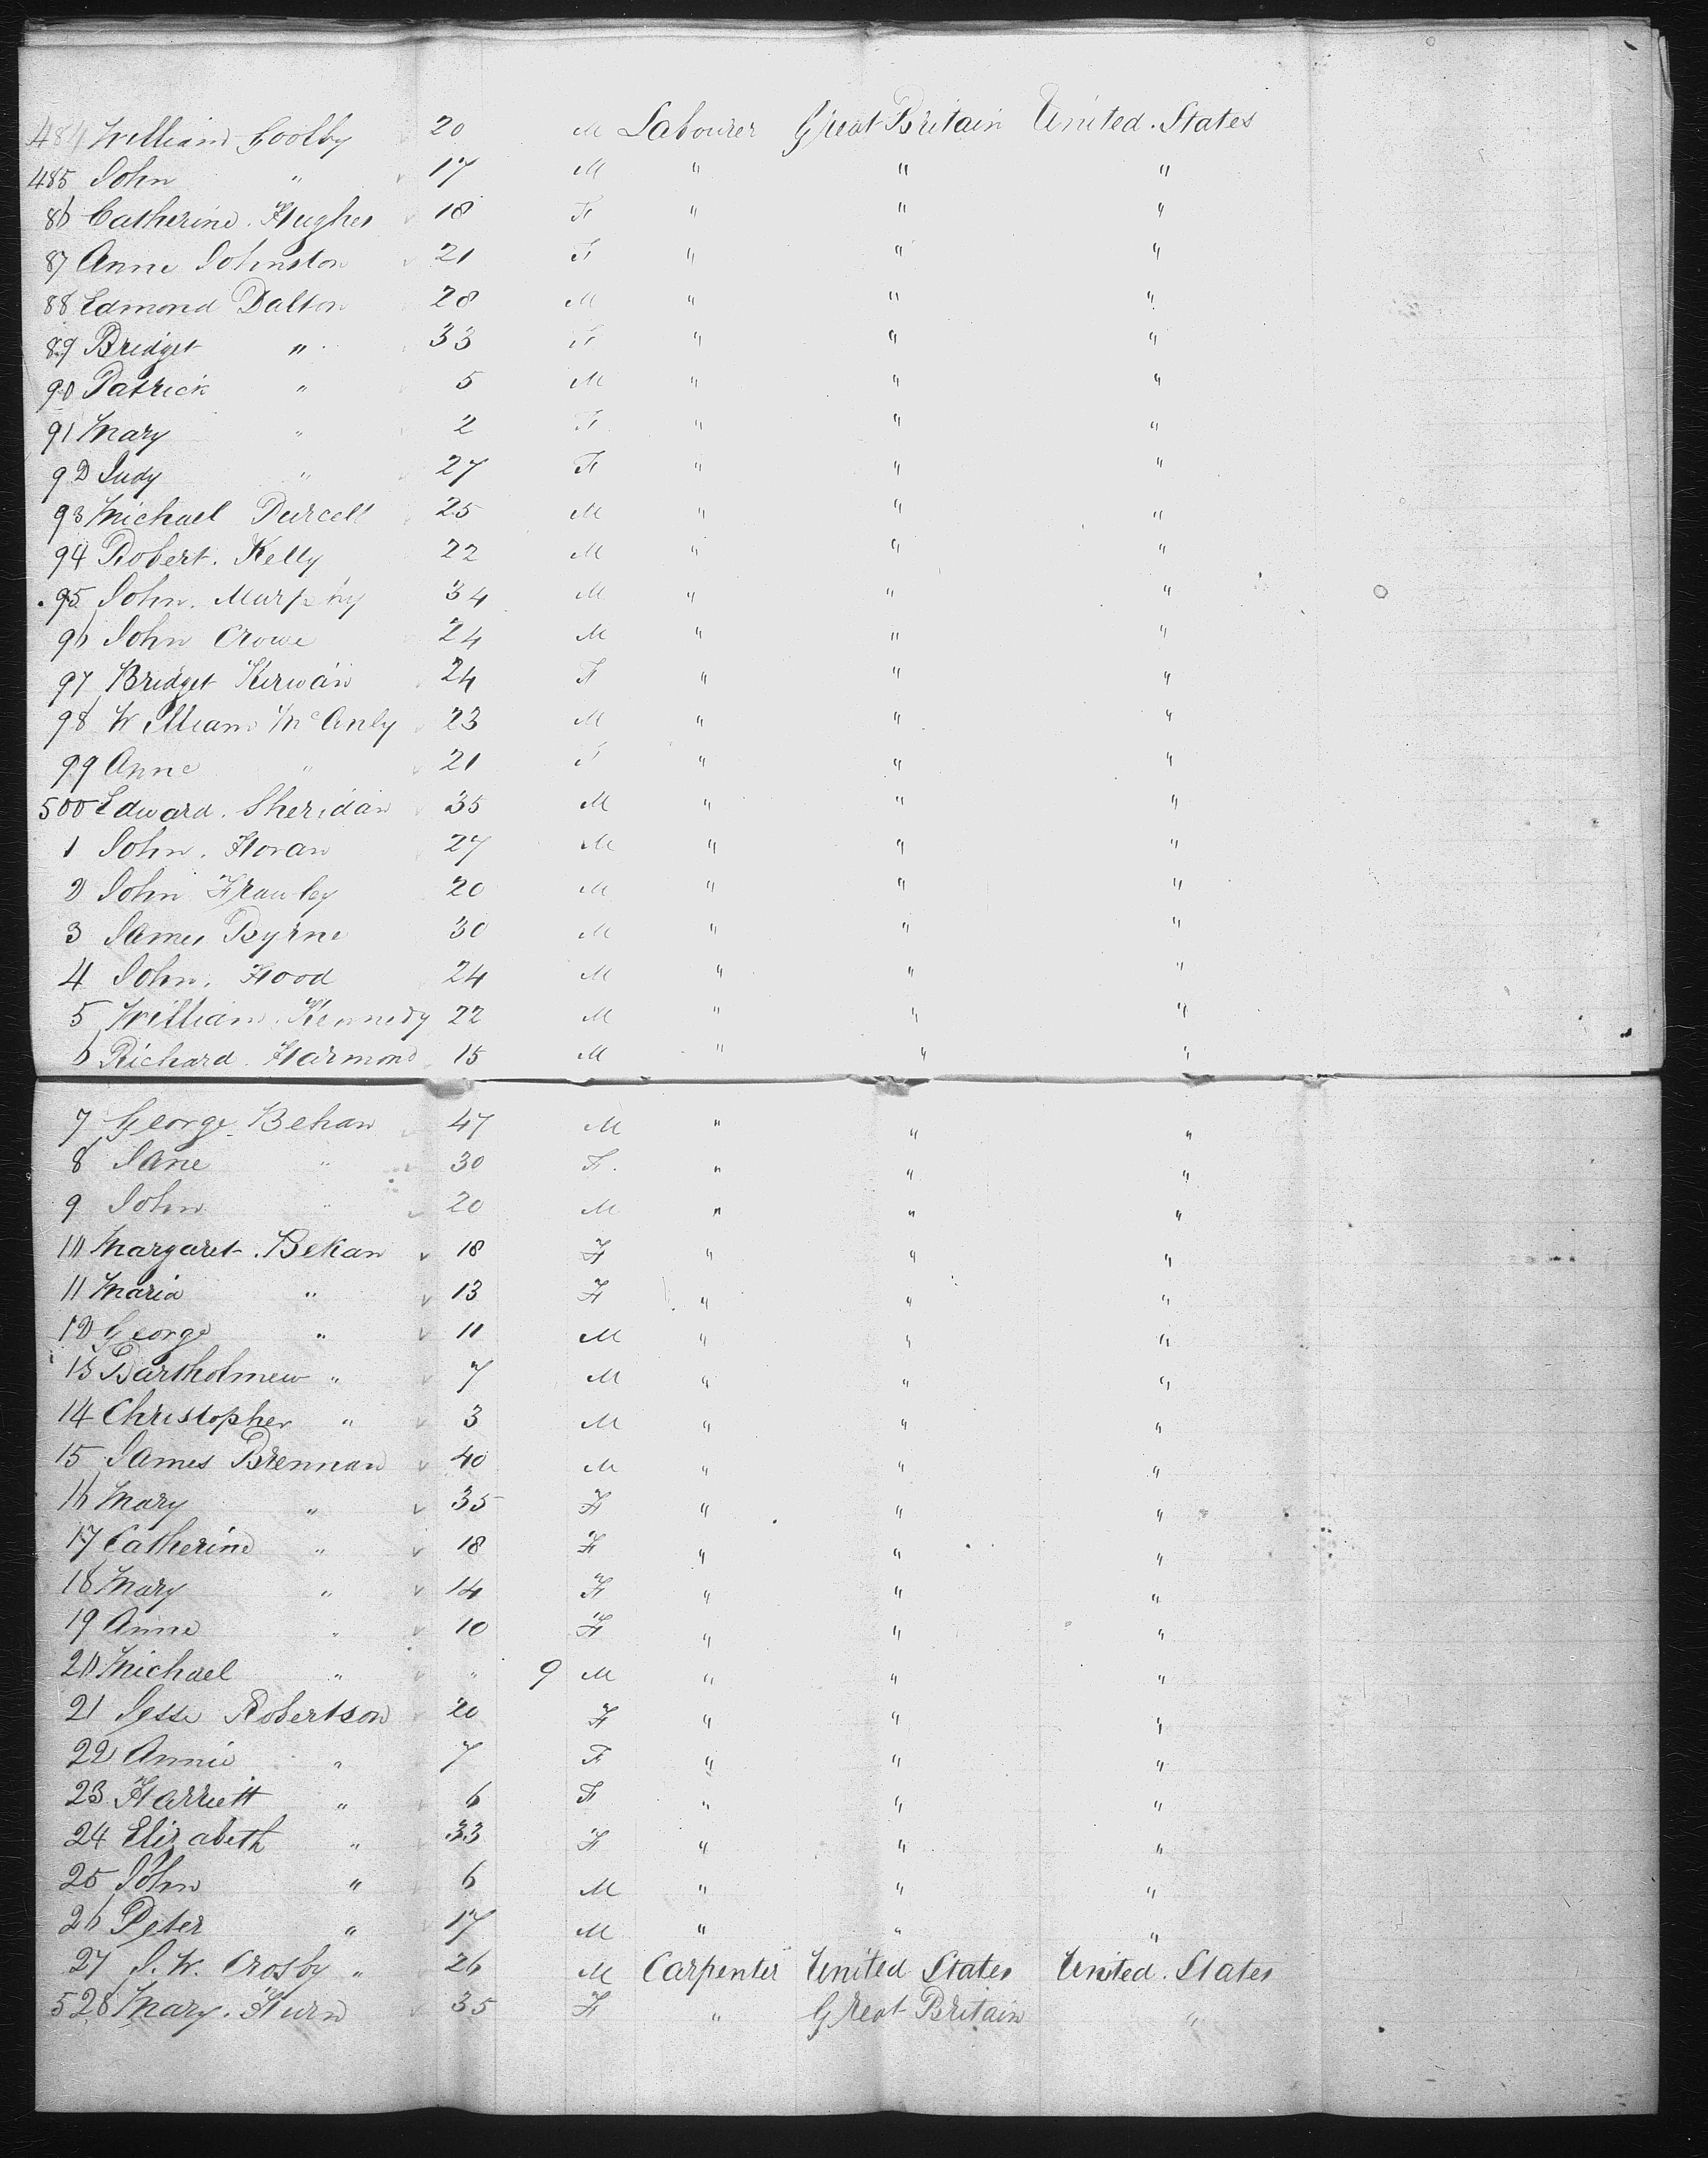 484 William Goolby 20 M Labourer Great Britain United States
485 John " 17 M " " "
86 Catherine Hughes 18 F " " "
87 Anne Johnston 21 F " " "
88 Edmond Dalton 28 M " " "
89 Bridget " 33 F " " "
90 Patrick " 5 M " " "
91 Mary " 2 F " " "
92 Judy " 27 F " " "
93 Michael Purcell 25 M " " "
94 Robert Kelly 22 M " " "
95 John Murphy 34 M " " "
96 John Crowe 24 M " " "
97 Bridget Kirwan 24 F " " "
98 William McAnly 23 M " " "
99 Anne " 21 F " " "
500 Edward Sheridan 35 M " " "
1 John Horan 27 M " " "
2 John Frawley 20 M " " "
3 James Byrne 30 M " " "
4 John Hood 24 M " " "
5 William Kennedy 22 M " " "
6 Richard Harmond 15 M " " "
7 George Behan 47 M " " "
8 Jane " 30 F " " "
9 John " 20 M " " "
10 Margaret Behan 18 F " " "
11 Maria " 13 F " " "
12 George " 11 M " " "
13 Bartholmew " 7 M " " "
14 Christopher " 3 M " " "
15 James Brennan 40 M " " "
16 Mary " 35 F " " "
17 Catherine " 18 F " " "
18 Mary " 14 F " " "
19 Anne " 10 F " " "
20 Michael " " 9 M " " "
21 Jesse Robertson 20 F " " "
22 Annie " 7 F " " "
23 Harriett " 6 F " " "
24 Elizabeth " 33 F " " "
25 John " 6 M " " "
26 Peter " 17 M " " "
27 J. W. Crosby " 26 M Carpenter United States United States
528 Mary Hurn 35 F " Great Britain "